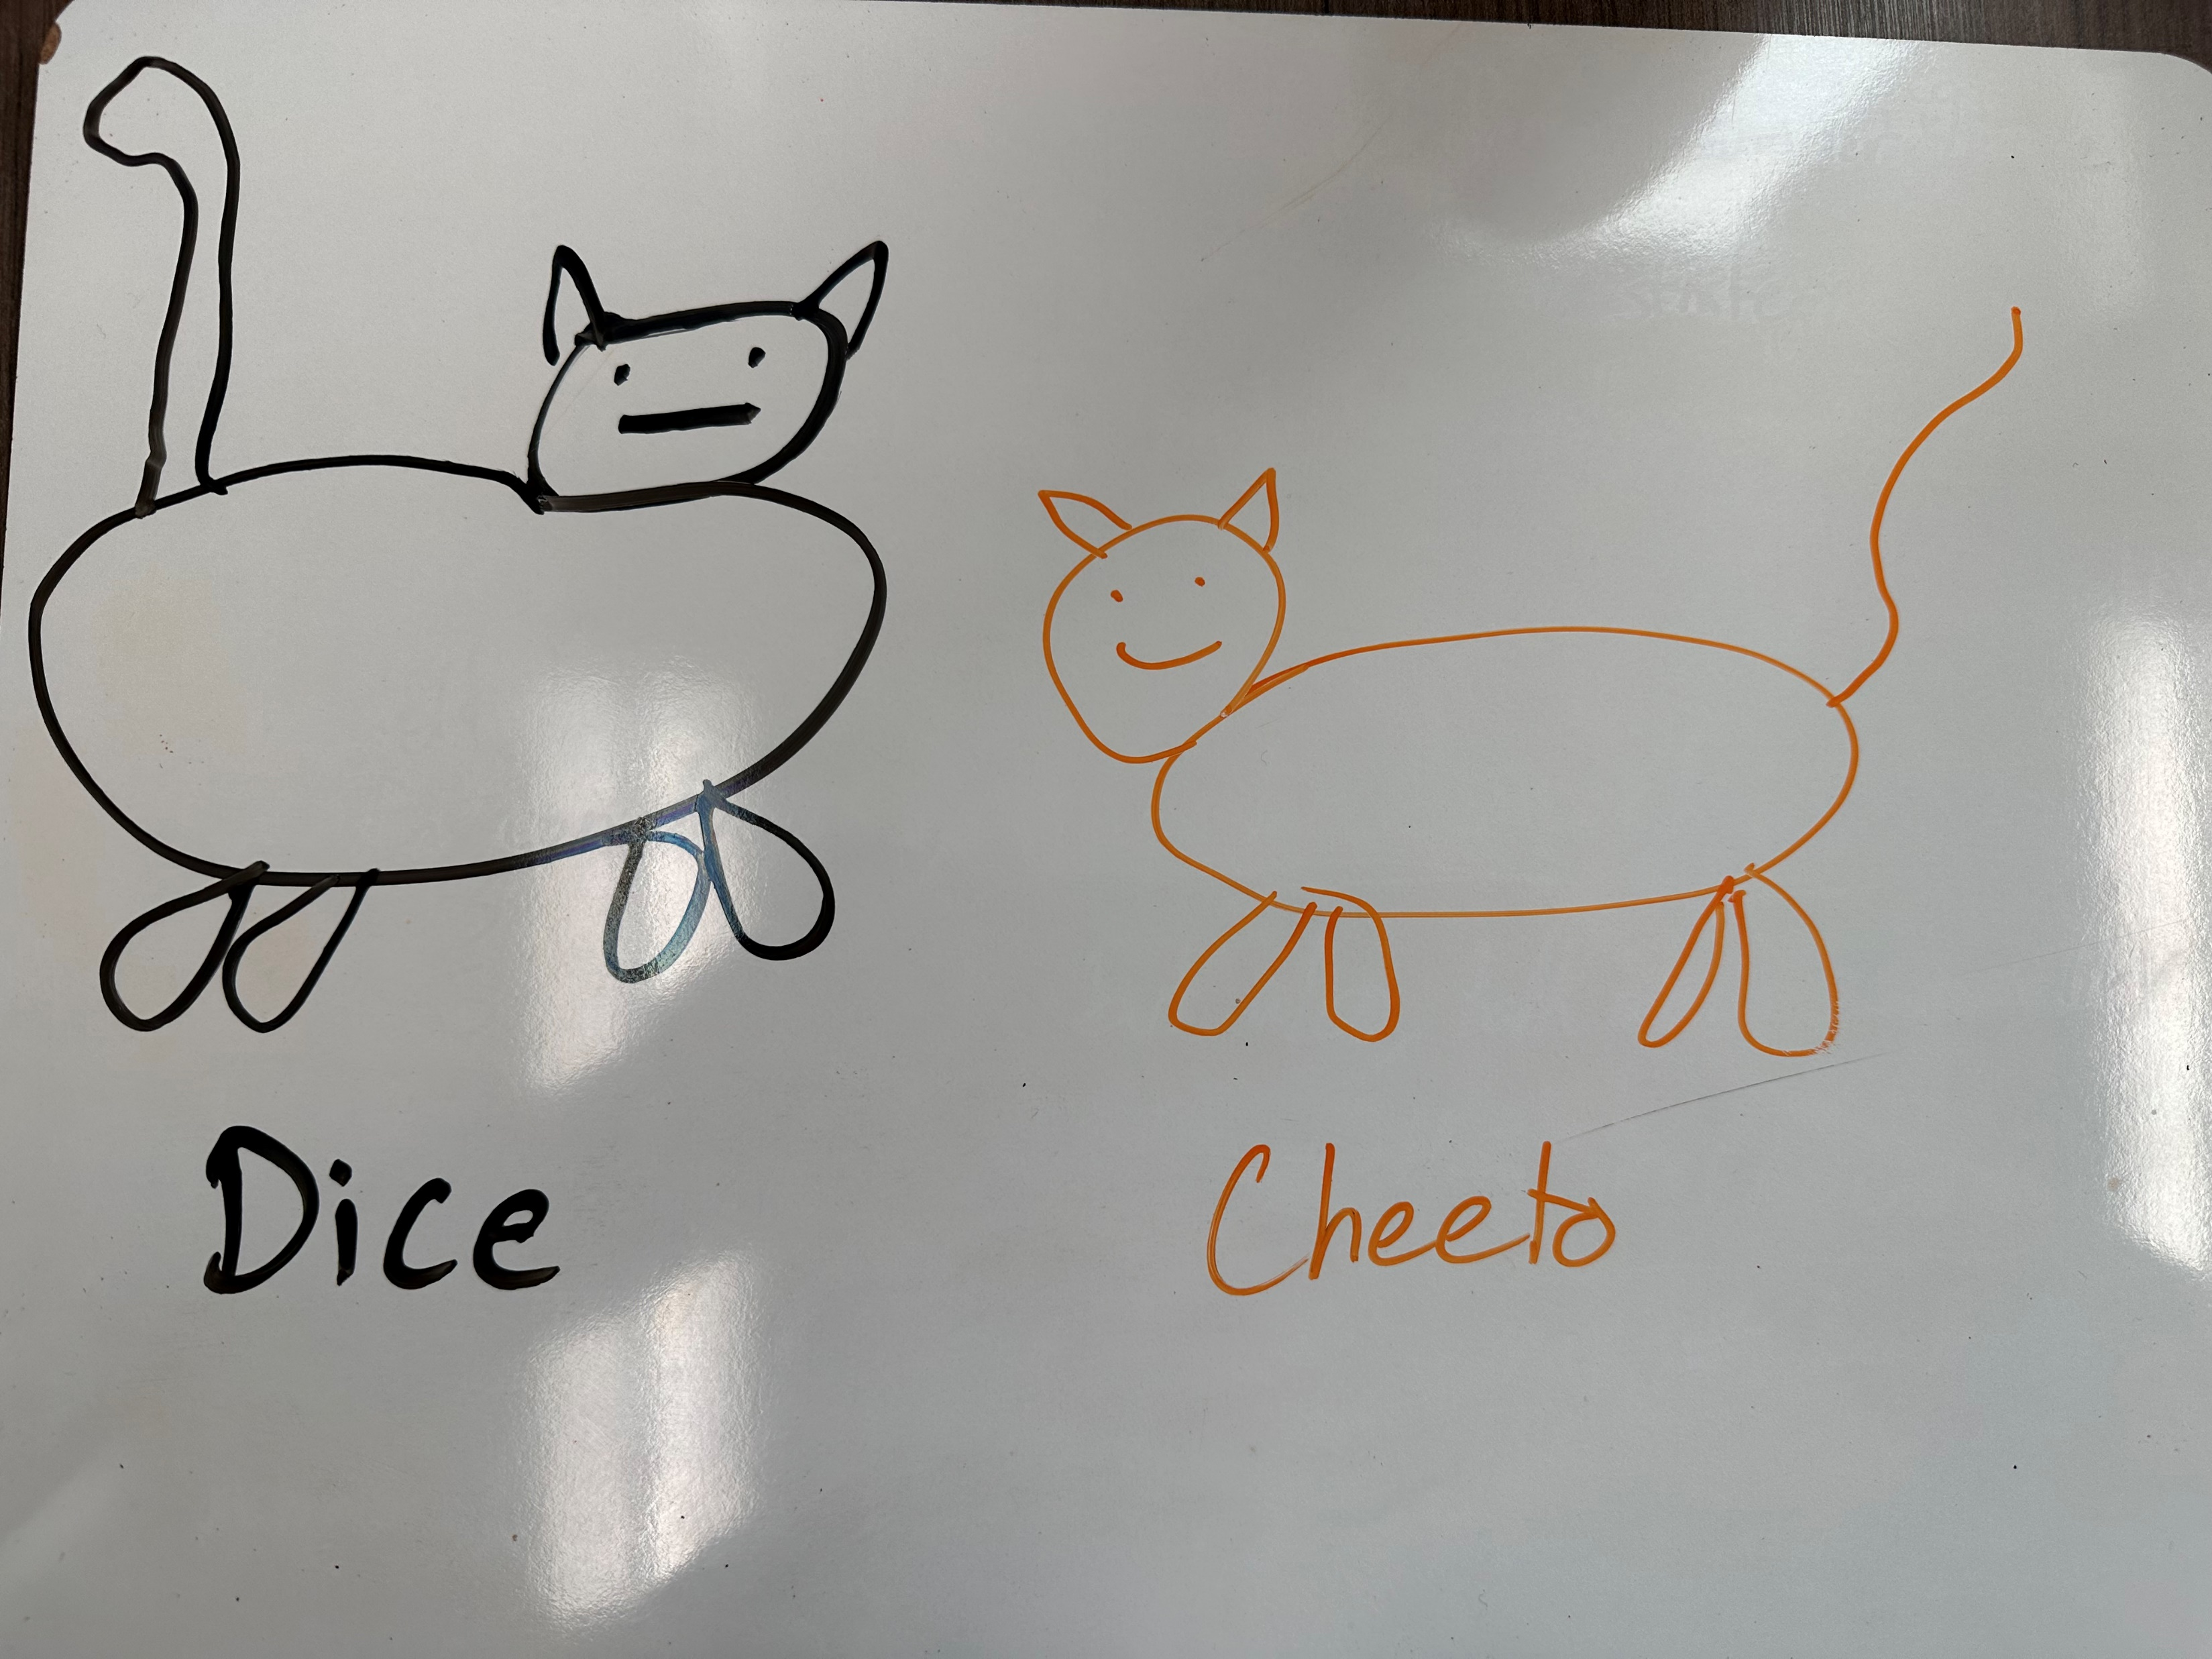 Dice
Cheeto